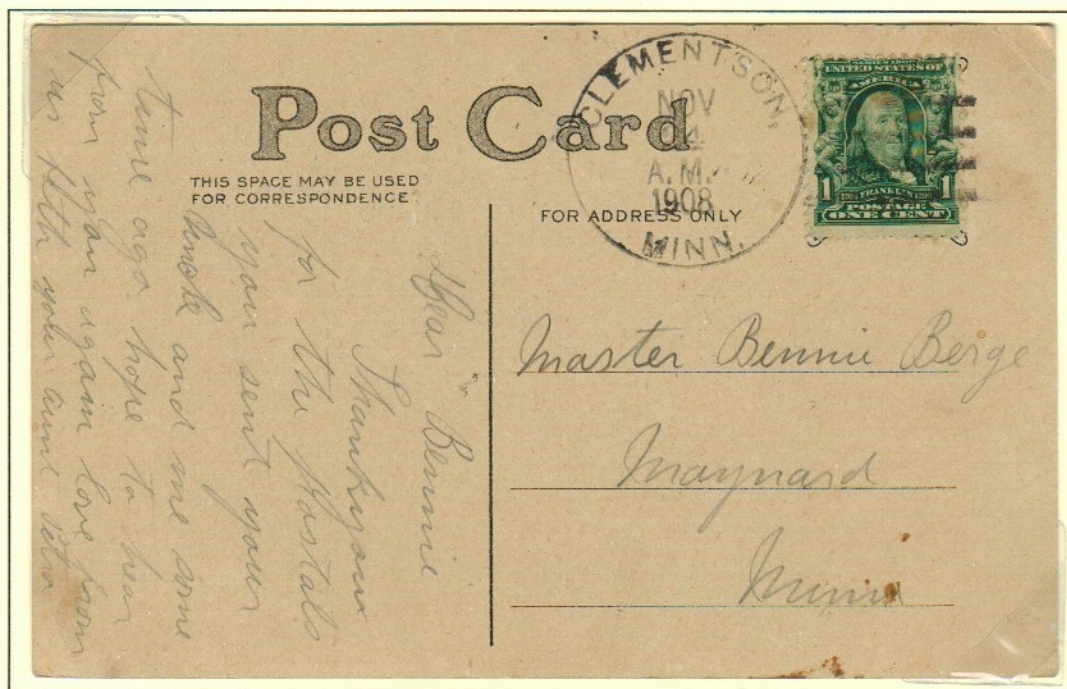 Post Card
THIS SPACE MAY BE USED
FOR CORRESPONDENCE
FOR ADDRESS ONLY
CLEMENTSON,
NOV
4
A.M.
1908
MINN.
SERIES 1902
UNITED STATES OF
AMERICA
1 FRANKLIN 1
POSTAGE
ONE CENT
Dear Bennie
Thankyou
for the postals
you sent your
Uncle and me some
time ago hope to hear
from you again love from
us both your aunt
Master Bennie Berge
Maynard
Minn